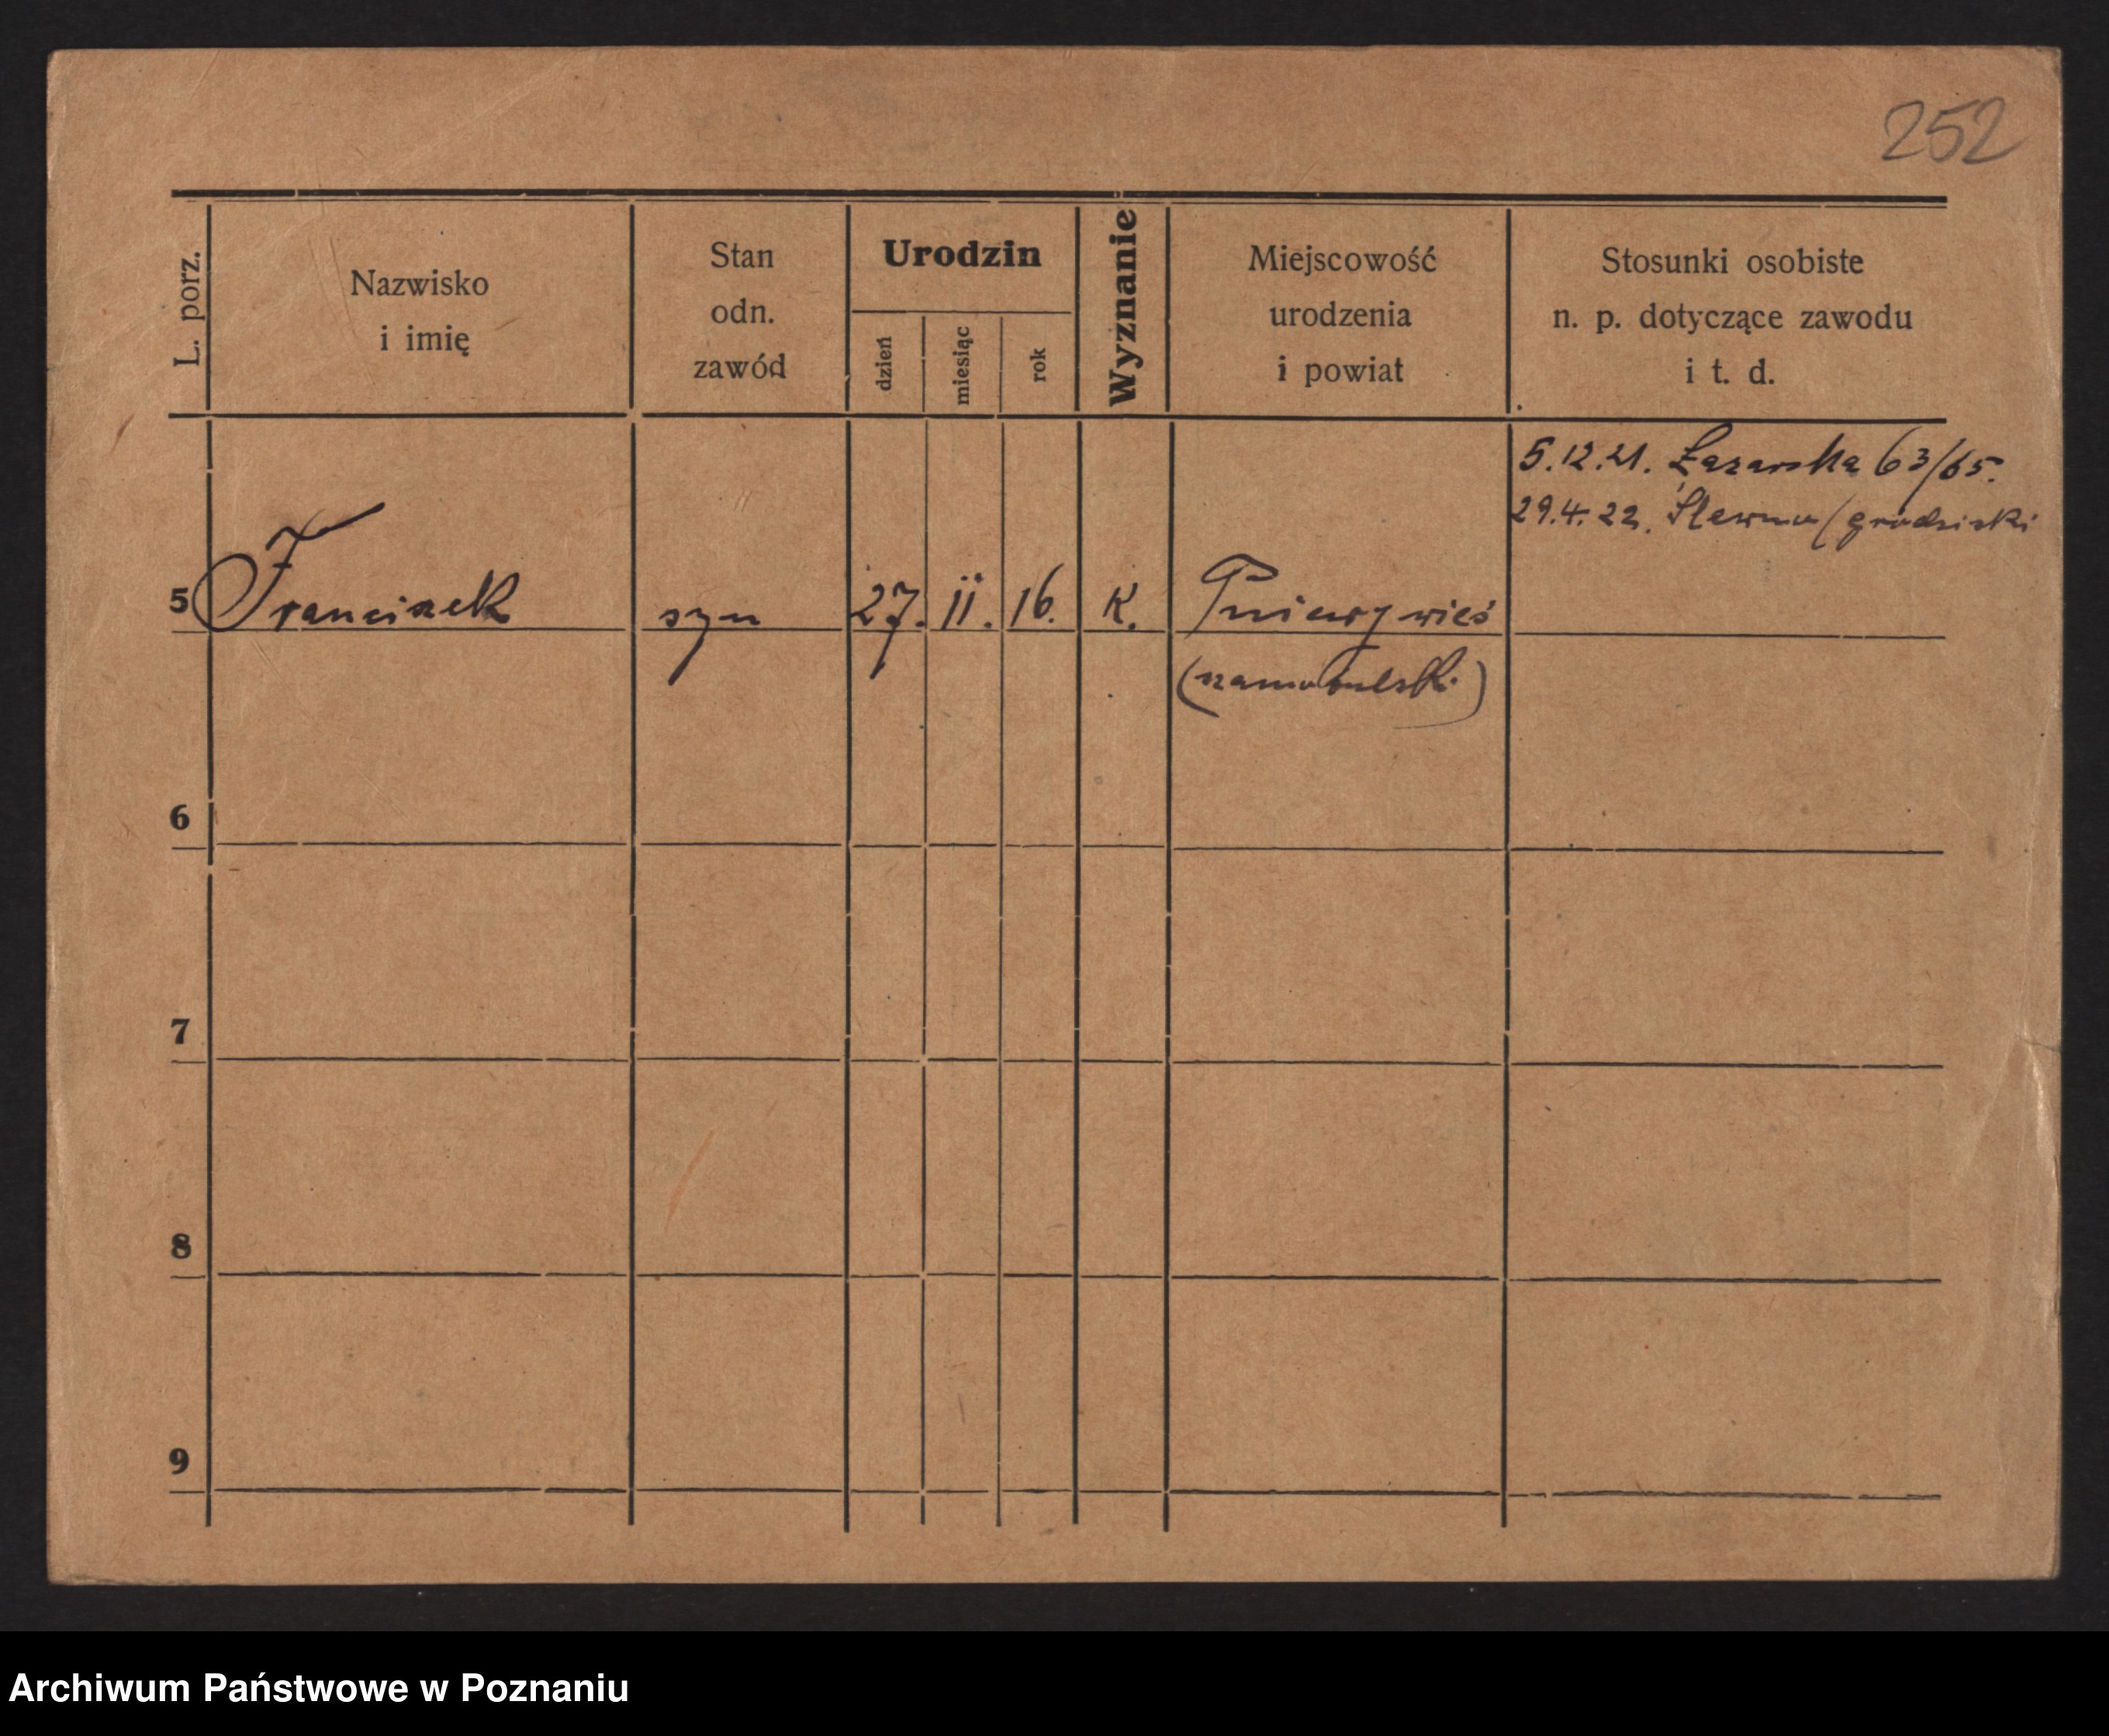 252
L. porz.
Nazwisko
i imię
Stan
odn.
zawód
Urodzin
dzień
miesiąc
rok
Wyznanie
Miejscowość
urodzenia
i powiat
Stosunki osobiste
n. p. dotyczące zawodu
i t. d.
5.12.21. Łazarska 63/65.
29.4.22. (grodziski
5 Franciszek syn 27. II. 16. K. Pniewy wieś
(szamotulski)
6
7
8
9
Archiwum Państwowe w Poznaniu